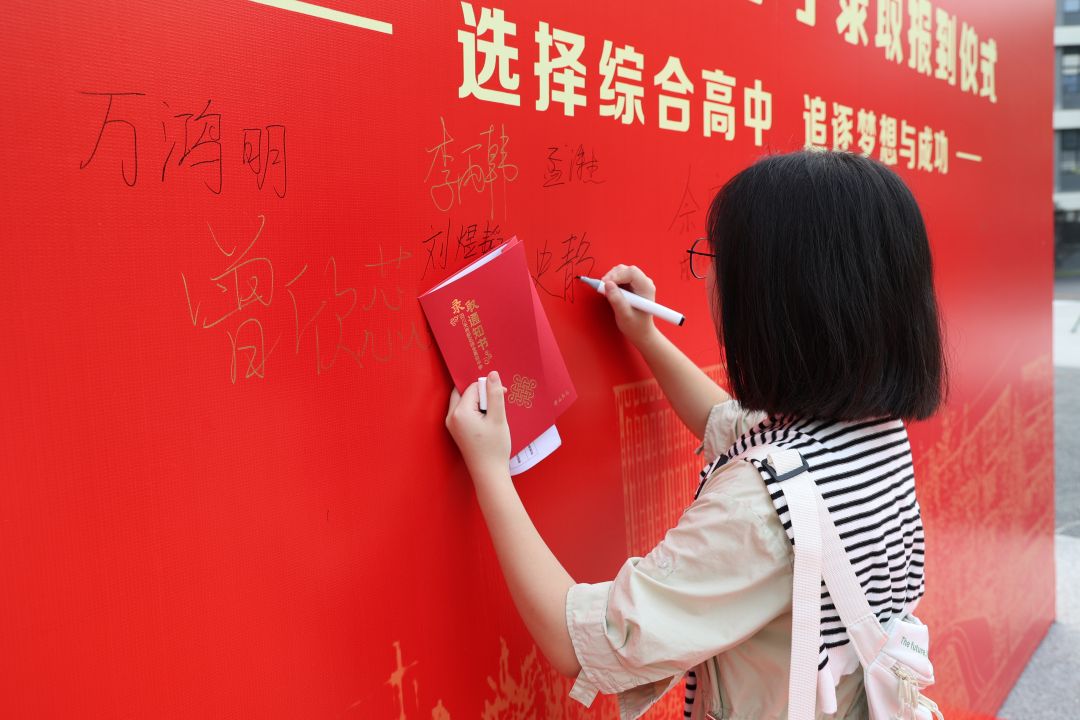 录取报到仪式
选择综合高中 追逐梦想与成功
万鸿明
李雨韩
孟淮
余
刘煜静
史静
曾欣芯
录取
通知书
The future